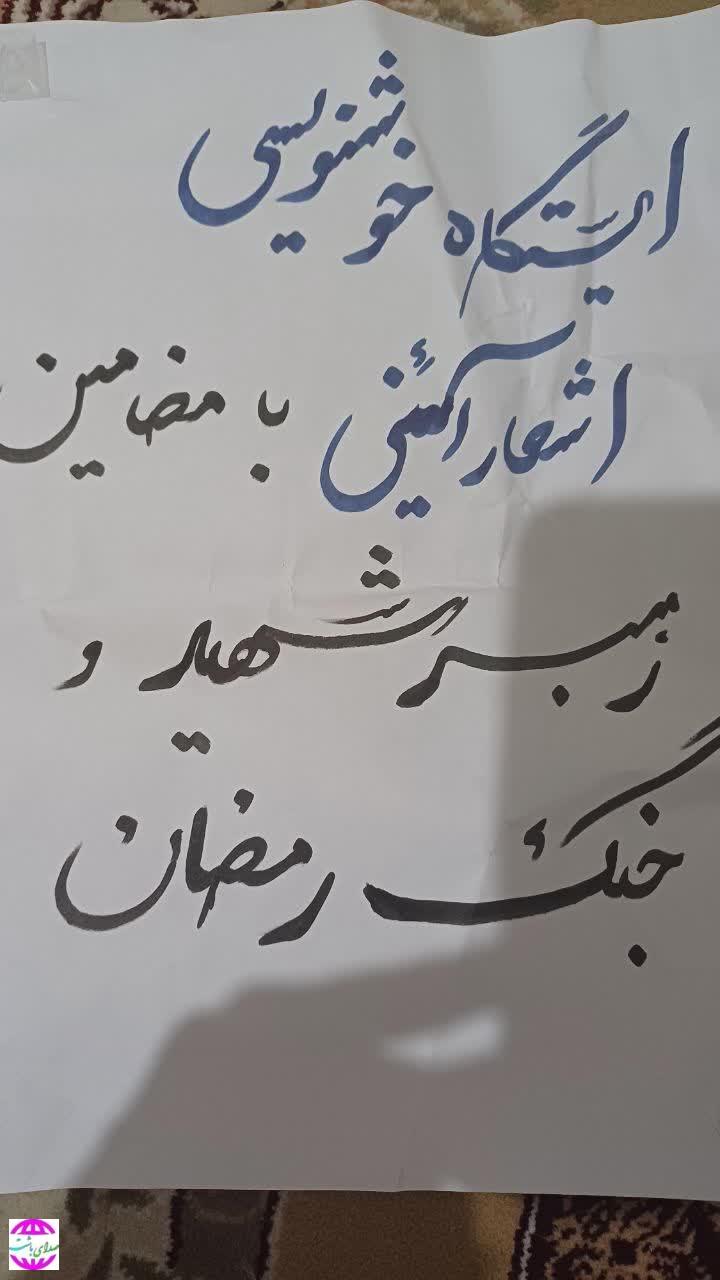 ایستگاه خوشنویسی
اشعار آئینی با مضامین
رهبر شهید و
جنگ رمضان
صدای باشت